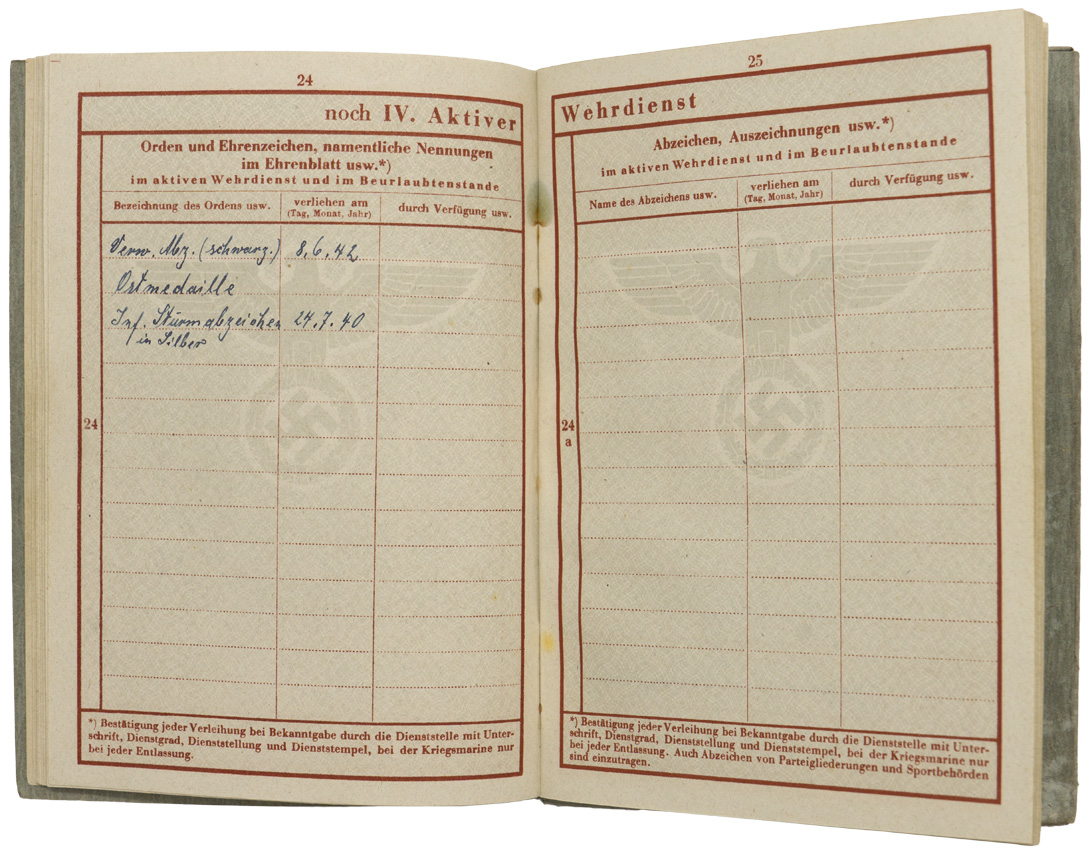 24
noch IV. Aktiver
Orden und Ehrenzeichen, namentliche Nennungen
im Ehrenblatt usw.*)
im aktiven Wehrdienst und im Beurlaubtenstande
Bezeichnung des Ordens usw.
verliehen am
(Tag, Monat, Jahr)
durch Verfügung usw.
Verw. Abz. (schwarz.) 8.6.42
Ostmedaille
Inf. Sturmabzeichen 24.7.40
in Silber
24
*) Bestätigung jeder Verleihung bei Bekanntgabe durch die Dienststelle mit Unter-
schrift, Dienstgrad, Dienststellung und Dienststempel, bei der Kriegsmarine nur
bei jeder Entlassung.
25
Wehrdienst
Abzeichen, Auszeichnungen usw.*)
im aktiven Wehrdienst und im Beurlaubtenstande
Name des Abzeichens usw.
verliehen am
(Tag, Monat, Jahr)
durch Verfügung usw.
24
a
*) Bestätigung jeder Verleihung bei Bekanntgabe durch die Dienststelle mit Unter-
schrift, Dienstgrad, Dienststellung und Dienststempel, bei der Kriegsmarine nur
bei jeder Entlassung. Auch Abzeichen von Parteigliederungen und Sportbehörden
sind einzutragen.